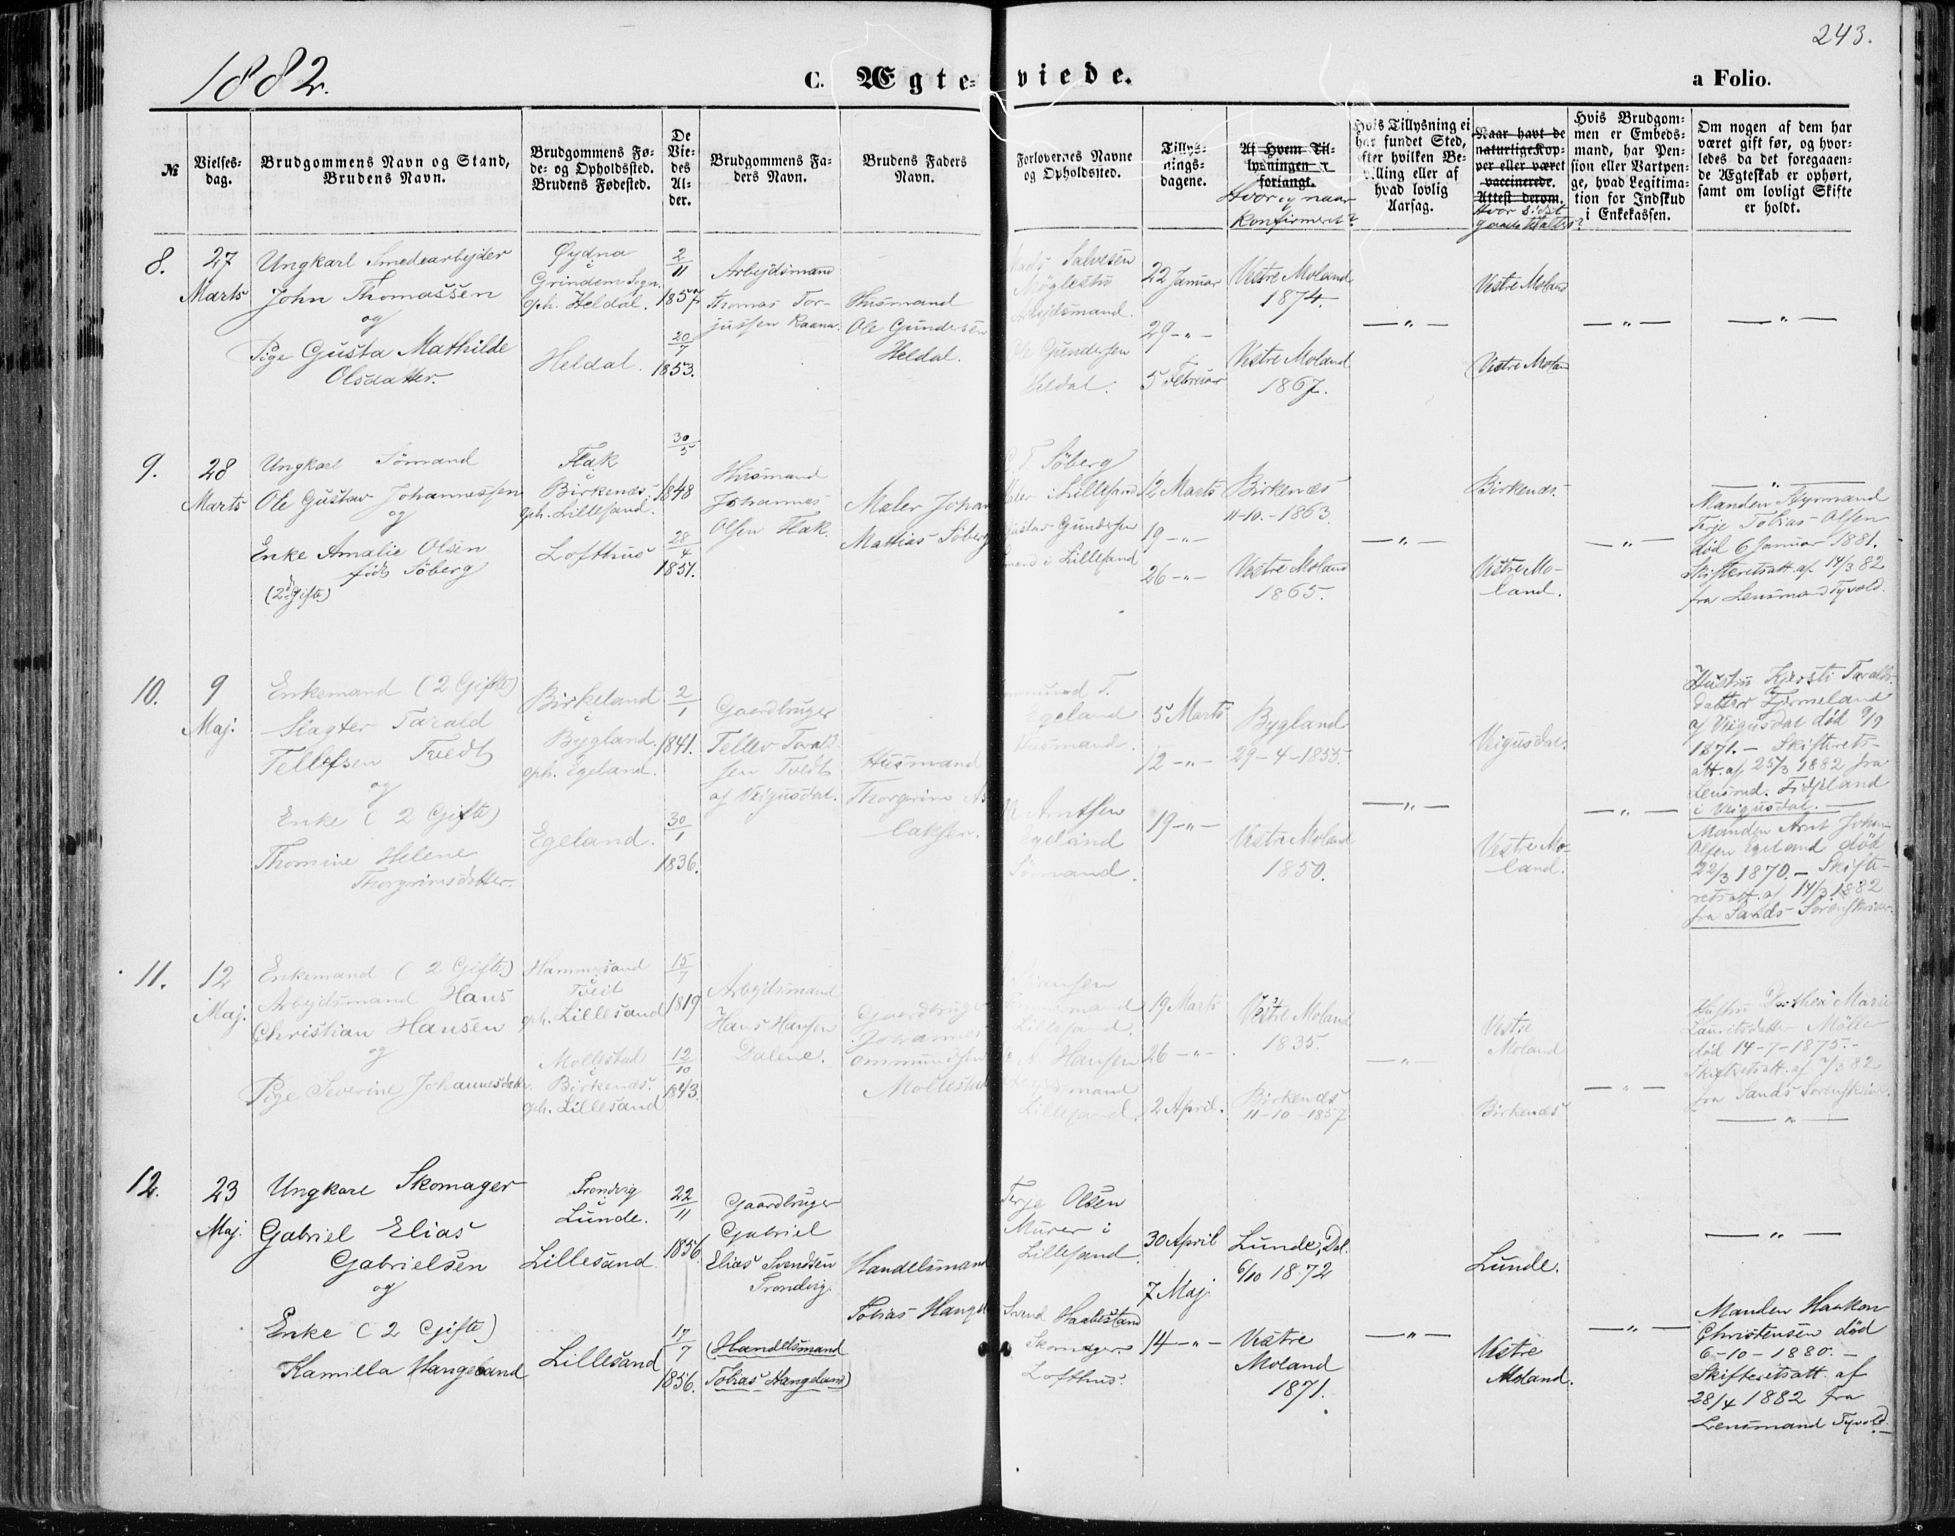 243.
1882.
C. Ægteviede.
a Folio.
№
Vielses-
dag.
Brudgommens Navn og Stand,
Brudens Navn.
Brudgommens Fø-
de- og Opholdssted.
Brudens Fødested.
De
Vie-
des
Al-
der.
Brudgommens Fa-
ders Navn.
Brudens Faders
Navn.
Forlovernes Navne
og Opholdssted.
Tillys-
nings-
dagene.
Af Hvem Til-
lysningen er
forlangt.
Hvor og naar
Konfirmeret?
Hvis Tillysning ei
har fundet Sted,
efter hvilken Be-
villing eller af
hvad lovlig
Aarsag.
Naar havt de
naturlige Kop-
per eller været
vaccinerede.
Attest derom.
Hvor sidst
Hvis Brudgom-
men er Embeds-
mand, har Pen-
sion eller Vartpen-
ge, hvad Legitima-
tion for Indskud
i Enkekassen.
Om nogen af dem har
været gift før, og hvor-
ledes da det foregaaen-
de Ægteskab er ophørt,
samt om lovligt Skifte
er holdt.
8.
27
Marts
Ungkarl Smedearbejder
John Thomassen
og
Pige Gusta Mathilde
Olsdatter.
Øydna
i
Grindem Sogn.
oph. Heldal.
Heldal.
2/11
1857
20/7
1853.
Arbejdsmand
Thomas Tor-
jussen Raana.
Husmand
Ole Gundersen
Heldal.
Mads Salvesen
Arbejdsmand.
Gundersen
Heldal.
22 Januar
29 - " -
5 Februar
Vestre Moland
1874.
Vestre Moland
1867.
— " —
Vestre Moland
Vestre Moland
— " —
— " —
9.
28
Marts
Ungkarl Sømand
Ole Gustav Johannessen
og
Enke Amalie Olsen
født Søberg
(2 Gifte)
Flak
i
Birkenes
oph. Lillesand.
Lofthus
30/5
1848
28/4
1851.
Husmand
Johannes
Olsen Flak.
Maler Johan
Mathias Søberg
T. Søberg
Maler i Lillesand
Gustav Gundersen
Sømand i Lillesand
12 Marts
19 - " -
26 - " -
Birkenes
11-10.-1863
Vestre Moland
1865.
— " —
Birkenes.
Vestre Mo-
land.
— " —
— " —
Manden Styrmand
Terje Tobias Olsen
død 6 Januar 1881.
Skifteretsatt. af 14/3 82
fra Lensmand Tyvold.
10.
9
Maj.
Enkemand (2 Gifte)
Slagter Tarald
Tellefsen Tvedt
og
Enke (2 Gifte)
Thomine Helene
Thorgrimsdatter.
Birkeland
i
Bygland.
oph. Egeland.
Egeland.
2/1
1841.
30/1
1836.
Gaardbruger
Tellev Tarald-
sen Tvedt
af Veigusdal.
Husmand
Thorgrim As-
laksen.
T.
Egeland
Husmand.
Arntsen
Egeland
Sømand.
5 Marts
12 - " -
19 - " -
Bygland
29-4-1855.
Vestre Moland
1850.
— " —
Veigusdal.
Vestre Mo-
land.
— " —
Hustru Kjersti Taralds-
datter Fjermeland
af Veigusdal død 9/9
1871. - Skifterets-
att. af 25/3 1882 fra
Lensmd.
i Veigusdal.
Manden Arnt Johan
Olsen Egeland død
22/3 1870. - Skifte-
retsatt. af 14/3 1882
fra Sands Sorenskriver.
11.
12
Maj.
Enkemand (2 Gifte)
Arbejdsmand Hans
Christian Hansen
og
Pige Severine Johannesdatter.
Hammersand
i
Tveit
oph. Lillesand
Mollestad
i
Birkenes.
oph. Lillesand
15/7
1819
12/10
1843.
Arbejdsmand
Hans Hansen
Dalene.
Gaardbruger
Johannes
Ommundsen
Mollestad
Hansen
Lillesand.
Hansen
Lillesand.
19 Marts
26 - " -
2 April.
Vestre Moland
1835.
Birkenes
11-10-1857
— " —
Vestre
Moland
Birkenes
— " —
Hustru Dorthea Marie
Lauritsdatter Møller
død 14-7-1875.-
Skifteretsatt. af 7/3 82
fra Sands Sorenskriver.
— " —
12.
23
Maj.
Ungkarl Skomager
Gabriel Elias
Gabrielsen
og
Enke (2 Gifte)
Kamilla Hangeland
Trondvig
Lunde.
Lillesand
Lillesand
22/11
1856.
17/7
1856.
Gaardbruger
Gabriel
Elias Svendsen
Trondvig.
(Handelsmand
Tobias Hangeland)
Handelsmand
Tobias Hangel
Terje Olsen
Murer i
Lillesand.
Svend Haabestand
Skomager
Lofthus.
30 April
7 Maj.
14 - " -
Lunde, Dal.
6/10 1872
Vestre
Moland
1871.
— " —
Lunde.
Vestre
Moland.
— " —
— " —
Manden Haakon
Christensen død
6-10-1880. -
Skifteretsatt. af
28/4 1882 fra
Lensmand Tyvold.